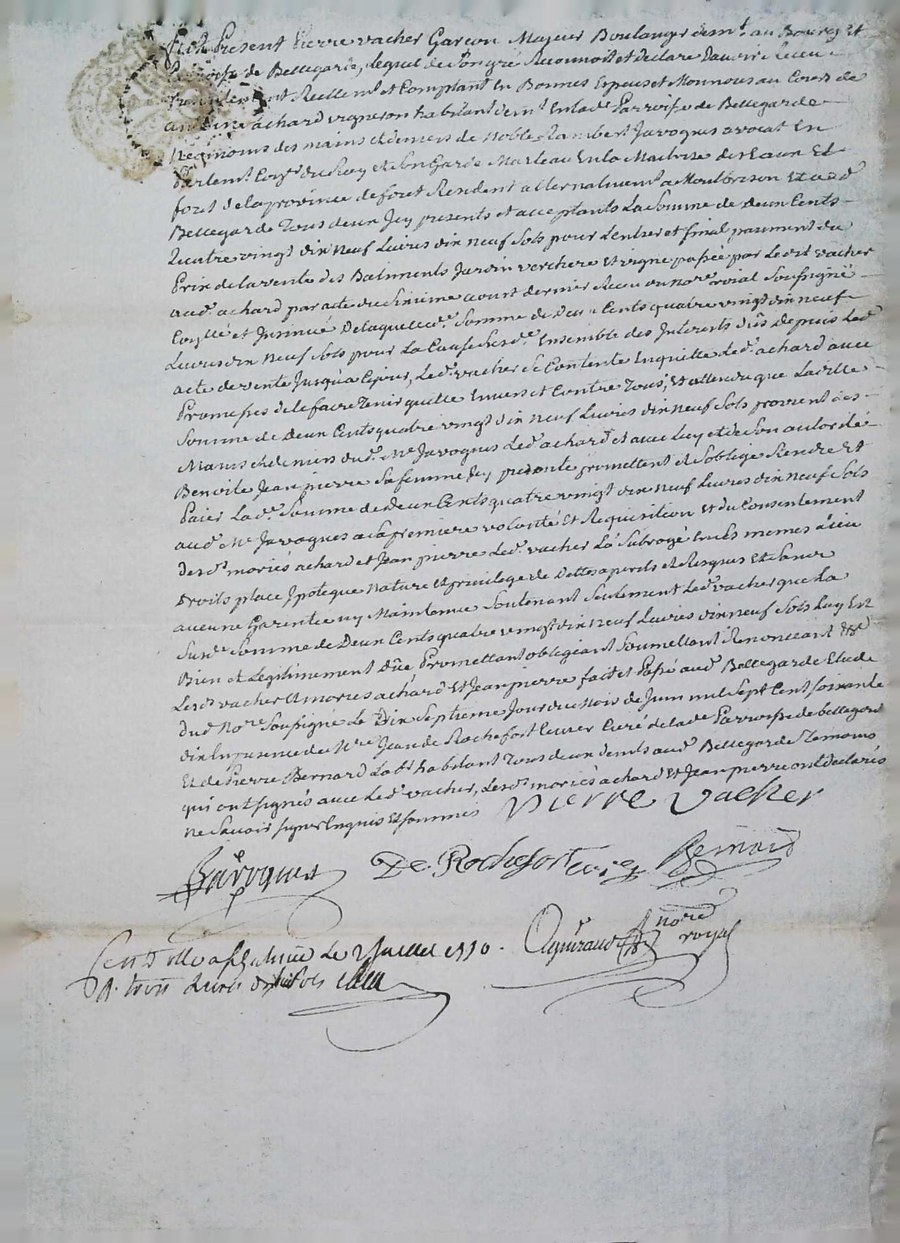 Fut Present Pierre vacher Garçon Majeur Boulanger dem.t au Bourg Et
Parroisse de Bellegarde, lequel de Son gré Reconnoit et declare d'avoir Receu
Presentement Reellem.t et Comptant En Bonnes Especes et Monnoye au Cours de
antoine achard vigneron habitant dem.t En lad.e Parroisse de Bellegarde
des mains et deniers de Noble Rambert Javogues avocat En
Parlem.t Con.er du Roy et Son Garde Marteau En la Maitrise des Eaux Et
foret de la province de foret Resident alternalivem.t a Montbrison Et aud.
Bellegarde Tous deux Icy presents et acceptants La Somme de deux Cents
Quatre vingt dix Neuf Livres dix neuf Sols pour L'entier et final paiment du
Prix de la vente des Batiments Jardin verchere Et vigne passée par Ledit vacher
aud. achard par acte du Sixieme aoust dernier Receu du no.re roial Soussigné
Con.llé et Insinué De laquelle Somme de Deux Cents quatre vingt dix neuf
Livres dix Neuf Sols pour La Cause Susd.e Ensemble des Interets dûs depuis Led.
acte de vente Jusqu'a Ce jour, Led. vacher Se Contente En quitte Led. achard avec
Promesses de le faire Tenir quitte Envers et Contre Tous, Et attendu que Laditte
Somme de Deux Cents quatre vingt dix Neuf Livres dix neuf Sols provient des
Mains et deniers dud. M.e Javogues Led. achard et avec Luy et de Son autorité
Benoite Jean pierre Sa femme Icy presente promettent et S'oblige Rendre Et
Paier Lad. Somme de Deux Cents quatre vingt dix Neuf Livres dix neuf Sols
aud. M.e Javogues a Sa premiere volonté Et Requisition et du Consentement
desd. mariés achard et Jean pierre Led. vacher L'a Subrogé En Ses memes Lieu
Droits place Ipoteque Nature et privilege de Dettes a perils et Risques Et Sans
aucune Garentie ny Maintenue Soutenant Seulement Led. vacher que La
Susd.e Somme de Deux Cents quatre vingt dix Neuf Livres dix neuf Sols Luy Est
Bien et Legitimement Dûe Promettant obligeant Soumettant Renonceant
Lesd. vacher mariés achard Et Jean pierre fait et Passé aud. Bellegarde Etude
dud. No.re Soussigné Le Dix Septieme Jour du Mois de Juin mil Sept Cent Soixante
dix En presence de M.re Jean de Rochefort Curé de lad.e Parroisse de bellegarde
Et de Pierre Bernard Lab.r habitant Tous deux dem.ts aud. Bellegarde Temoins
qui ont Signés avec Led. vacher, Lesd. mariés achard Et Jean pierre ont declarés
Ne Savoir Signer Enquis Et Sommés Pierre vacher
Javogues De Rochefort curé Bernard
no.re royal
Le 2 Juillet 1770
R. trois Livres